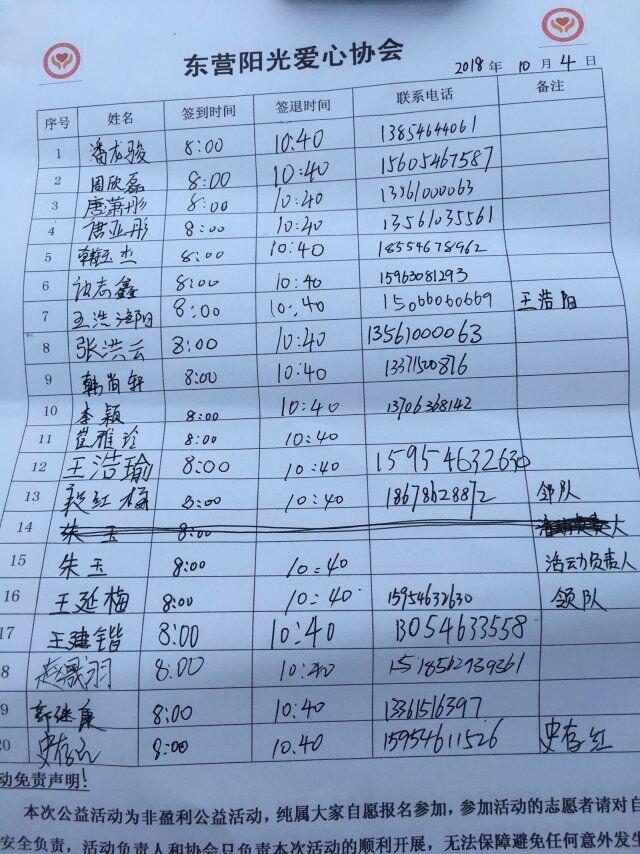 东营阳光爱心协会
2018 年 10 月 4 日
序号 姓名 签到时间 签退时间 联系电话 备注
1 潘龙骏 8:00 10:40 13854644061
2 周欣磊 8:00 10:40 15605467587
3 唐萧彤 8:00 10:40 13561000063
4 唐亚彤 8:00 10:40 13561035561
5 8:00 10:40 18554678962
6 志鑫 8:00 10:40 15963081293
7 王浩 8:00 10:40 15066060669 王浩阳
8 张洪云 8:00 10:40 13561000063
9 韩尚轩 8:00 10:40 13371500876
10 李颖 8:00 10:40 13706368142
11 雅珍 8:00 10:40
12 王浩瑜 8:00 10:40 15954632630
13 段红梅 8:00 10:40 18678628872 领队
14 朱玉 8:00
15 朱玉 8:00 10:40 活动负责人
16 王延梅 8:00 10:40 15954632630 领队
17 王建锴 8:00 10:40 13054633558
8 赵晟羽 8:00 10:40
9 郭继康 8:00 10:40 13361516397
20 史存红 8:00 10.40 15954611526 史存红
动免责声明!
本次公益活动为非盈利公益活动，纯属大家自愿报名参加，参加活动的志愿者请对自
安全负责，活动负责人和协会只负责本次活动的顺利开展，无法保障避免任何意外发生